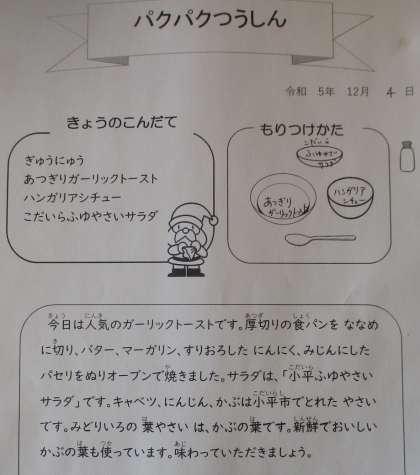 パクパクつうしん
令和 5年 12月 4 日
きょうのこんだて
ぎゅうにゅう
あつぎりガーリックトースト
ハンガリアシチュー
こだいらふゆやさいサラダ
もりつけかた
こだいら
ふゆやさい
サラダ
あつぎり
ガーリックトースト
ハンガリア
シチュー
今日は人気のガーリックトーストです。厚切りの食パンを ななめ
に切り、バター、マーガリン、すりおろした にんにく、みじんにした
パセリをぬりオーブンで焼きました。サラダは、「小平ふゆやさい
サラダ」です。キャベツ、にんじん、かぶは小平市でとれた やさい
です。みどりいろの 葉やさい は、かぶの葉です。新鮮でおいしい
かぶの葉も使っています。味わっていただきましょう。